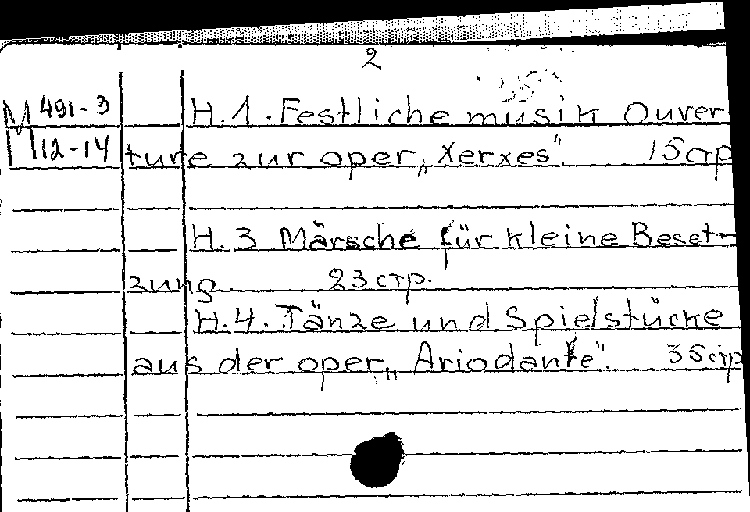 2
М 491-3 H.1. Festliche musik Ouver
М 112-14 ture zur oper „Xerxes". 15 стр
H.3 Märsche für kleine Beset-
zung. 23 стр.
H.4. Tänze und Spielstücke
aus der oper „Ariodante". 35 стр